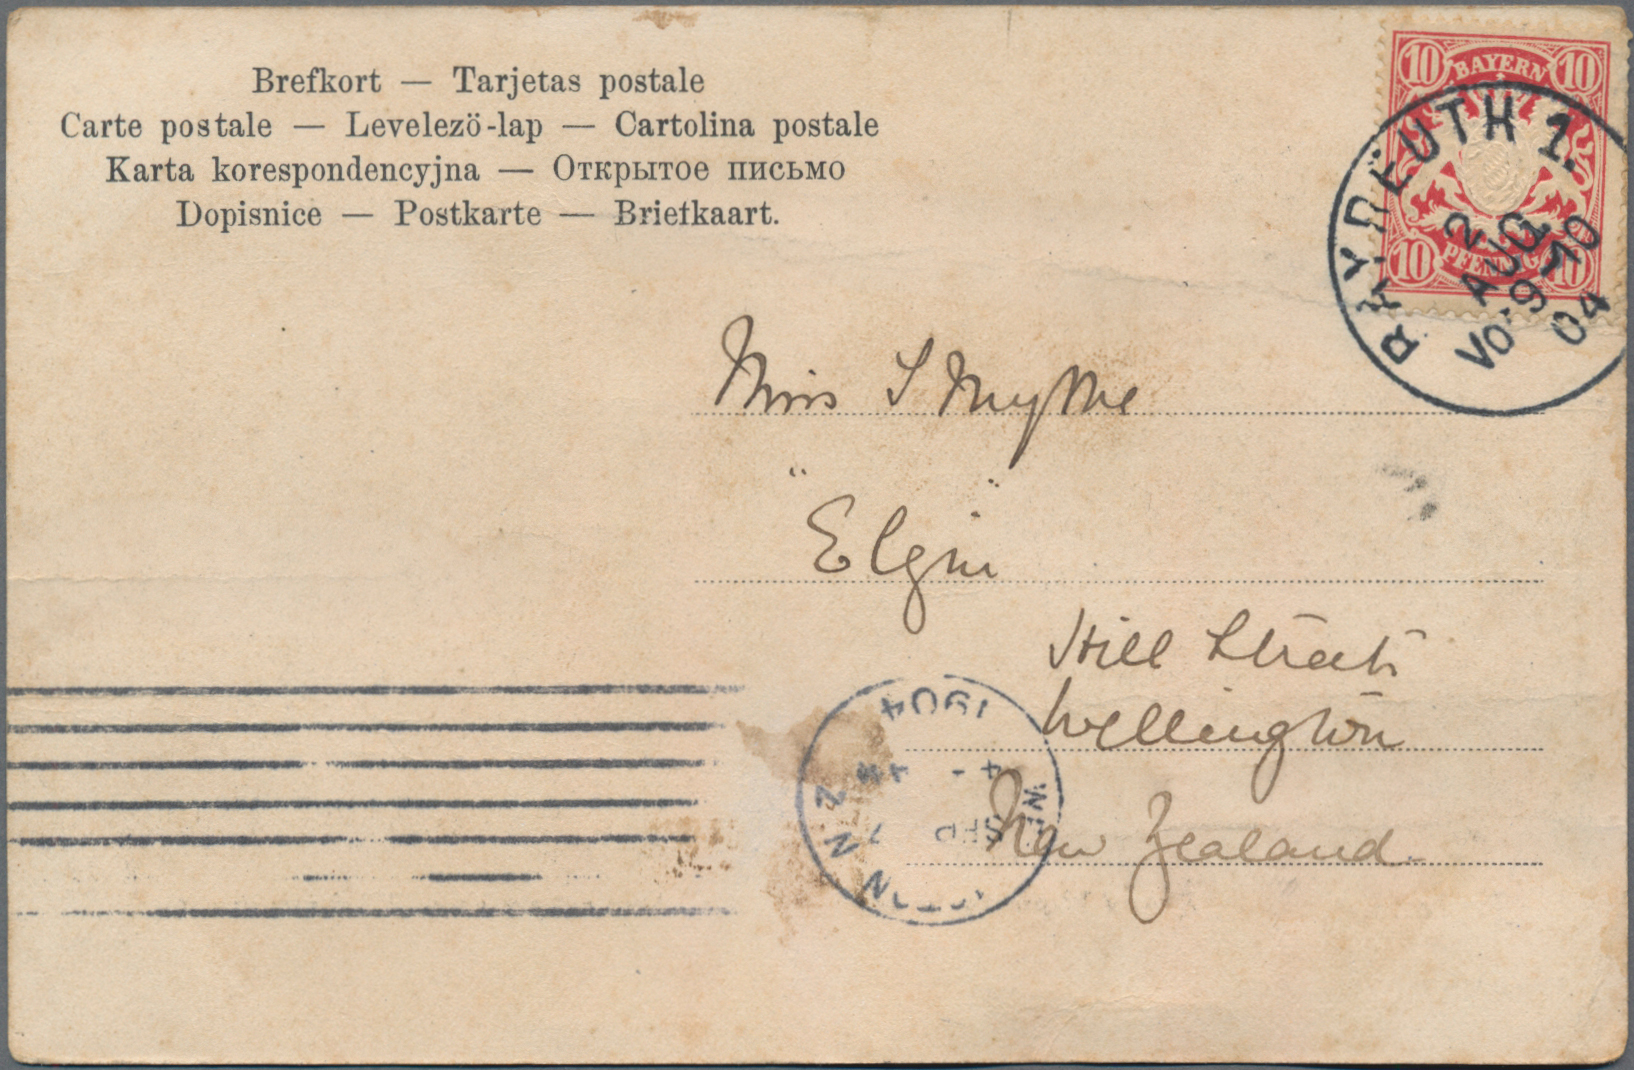 Brefkort — Tarjetas postale
Carte postale — Levelezö-lap — Cartolina postale
Karta korespondencyjna — Открытое письмо
Dopisnice — Postkarte — Briefkaart.
10 BAYERN 10
10 PFENNIG 10
BAYREUTH 1.
2
AUG
Vor 9-10
04
Miss Smythe
"Elgin"
Hill Street
Wellington
New Zealand.
1904
4
N Z